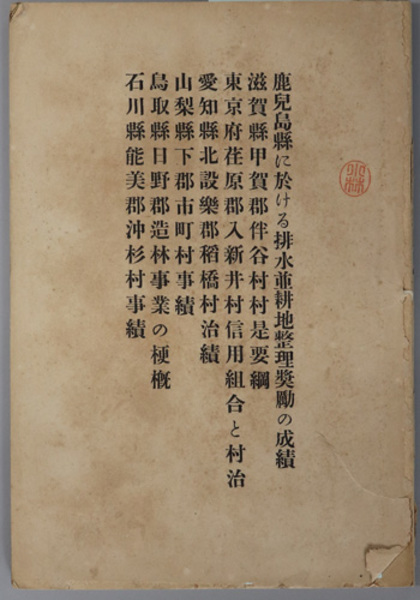 鹿兒島縣に於ける排水並耕地整理奬勵の成績
滋賀縣甲賀郡伴谷村村是要綱
東京府荏原郡入新井村信用組合と村治
愛知縣北設樂郡稻橋村治績
山梨縣下郡市町村事績
鳥取縣日野郡造林事業の梗槪
石川縣能美郡沖杉村事績